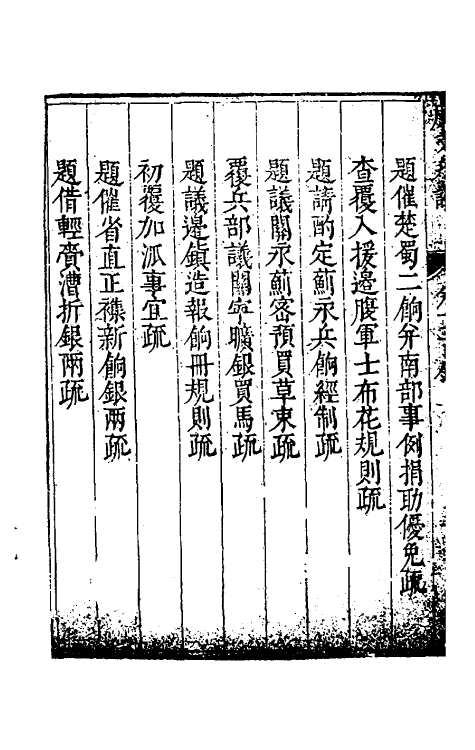 題催楚蜀二餉并南部事例捐助優免疏
查覆入援邊腹軍士布花規則疏
題請酌定薊永兵餉經制疏
題議關永薊密預買草束疏
覆兵部議關寧曠銀買馬疏
題議邊鎮造報餉冊規則疏
初覆加派事宜疏
題催省直正襍新餉銀兩疏
題借輕賫漕折銀兩疏